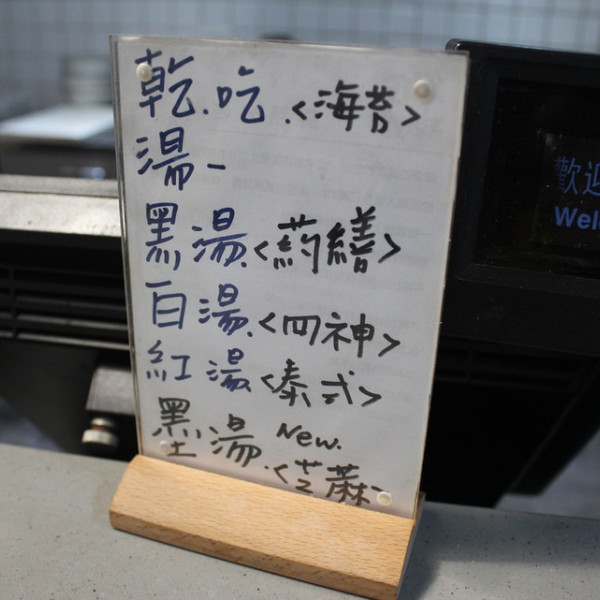 乾.吃.<海苔>
湯-
黑湯.<药繕>
白湯.<四神>
紅湯.<泰式>
墨湯 New.
<芝蔴>
歡迎
Wel